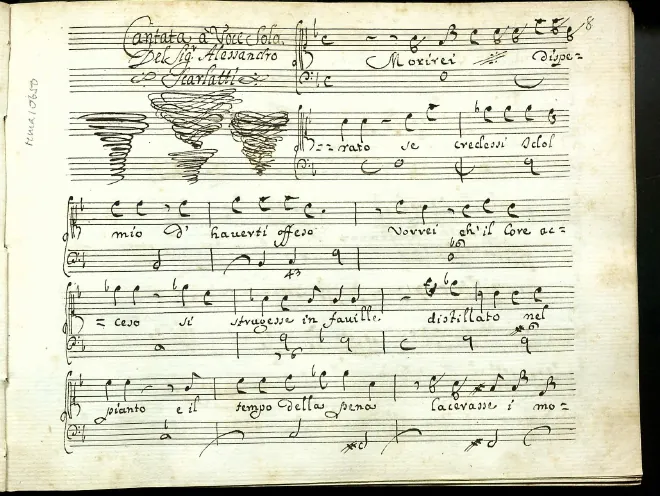 Cantata à Voce Sola.
Del Sigr. Alessandro
Scarlatti
8
Morirei dispe=
==rato se credessi Idol
mio d' haverti offeso vorrei ch'il Core ac=
43
b6
=ceso si strugesse in faville distillato nel
76
#6
pianto e il tempo della pena lacerasse i mo=